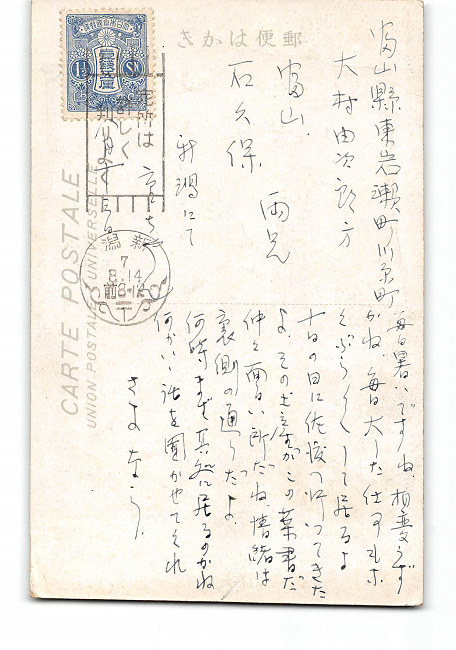 郵便はかき
CARTE POSTALE
UNION POSTALE UNIVERSELLE
1½ Sn
宛所は
詳しく
新潟
7
8.14
前8-12
富山縣東岩瀬町川原町
大村由次郎方
富山
石久保 両兄
新潟にて
毎日暑いですね、相変らず
かね、毎日大した仕事もな
くぶらくして居るよ
十日の日に佐渡へ行ってきた
よ、その土産がこの葉書だ
仲々面白い所だね、情緒は
裏側の通りだよ
何時まで其処に居るのかね
何かいゝ話を聞かせてくれ
さよなら、